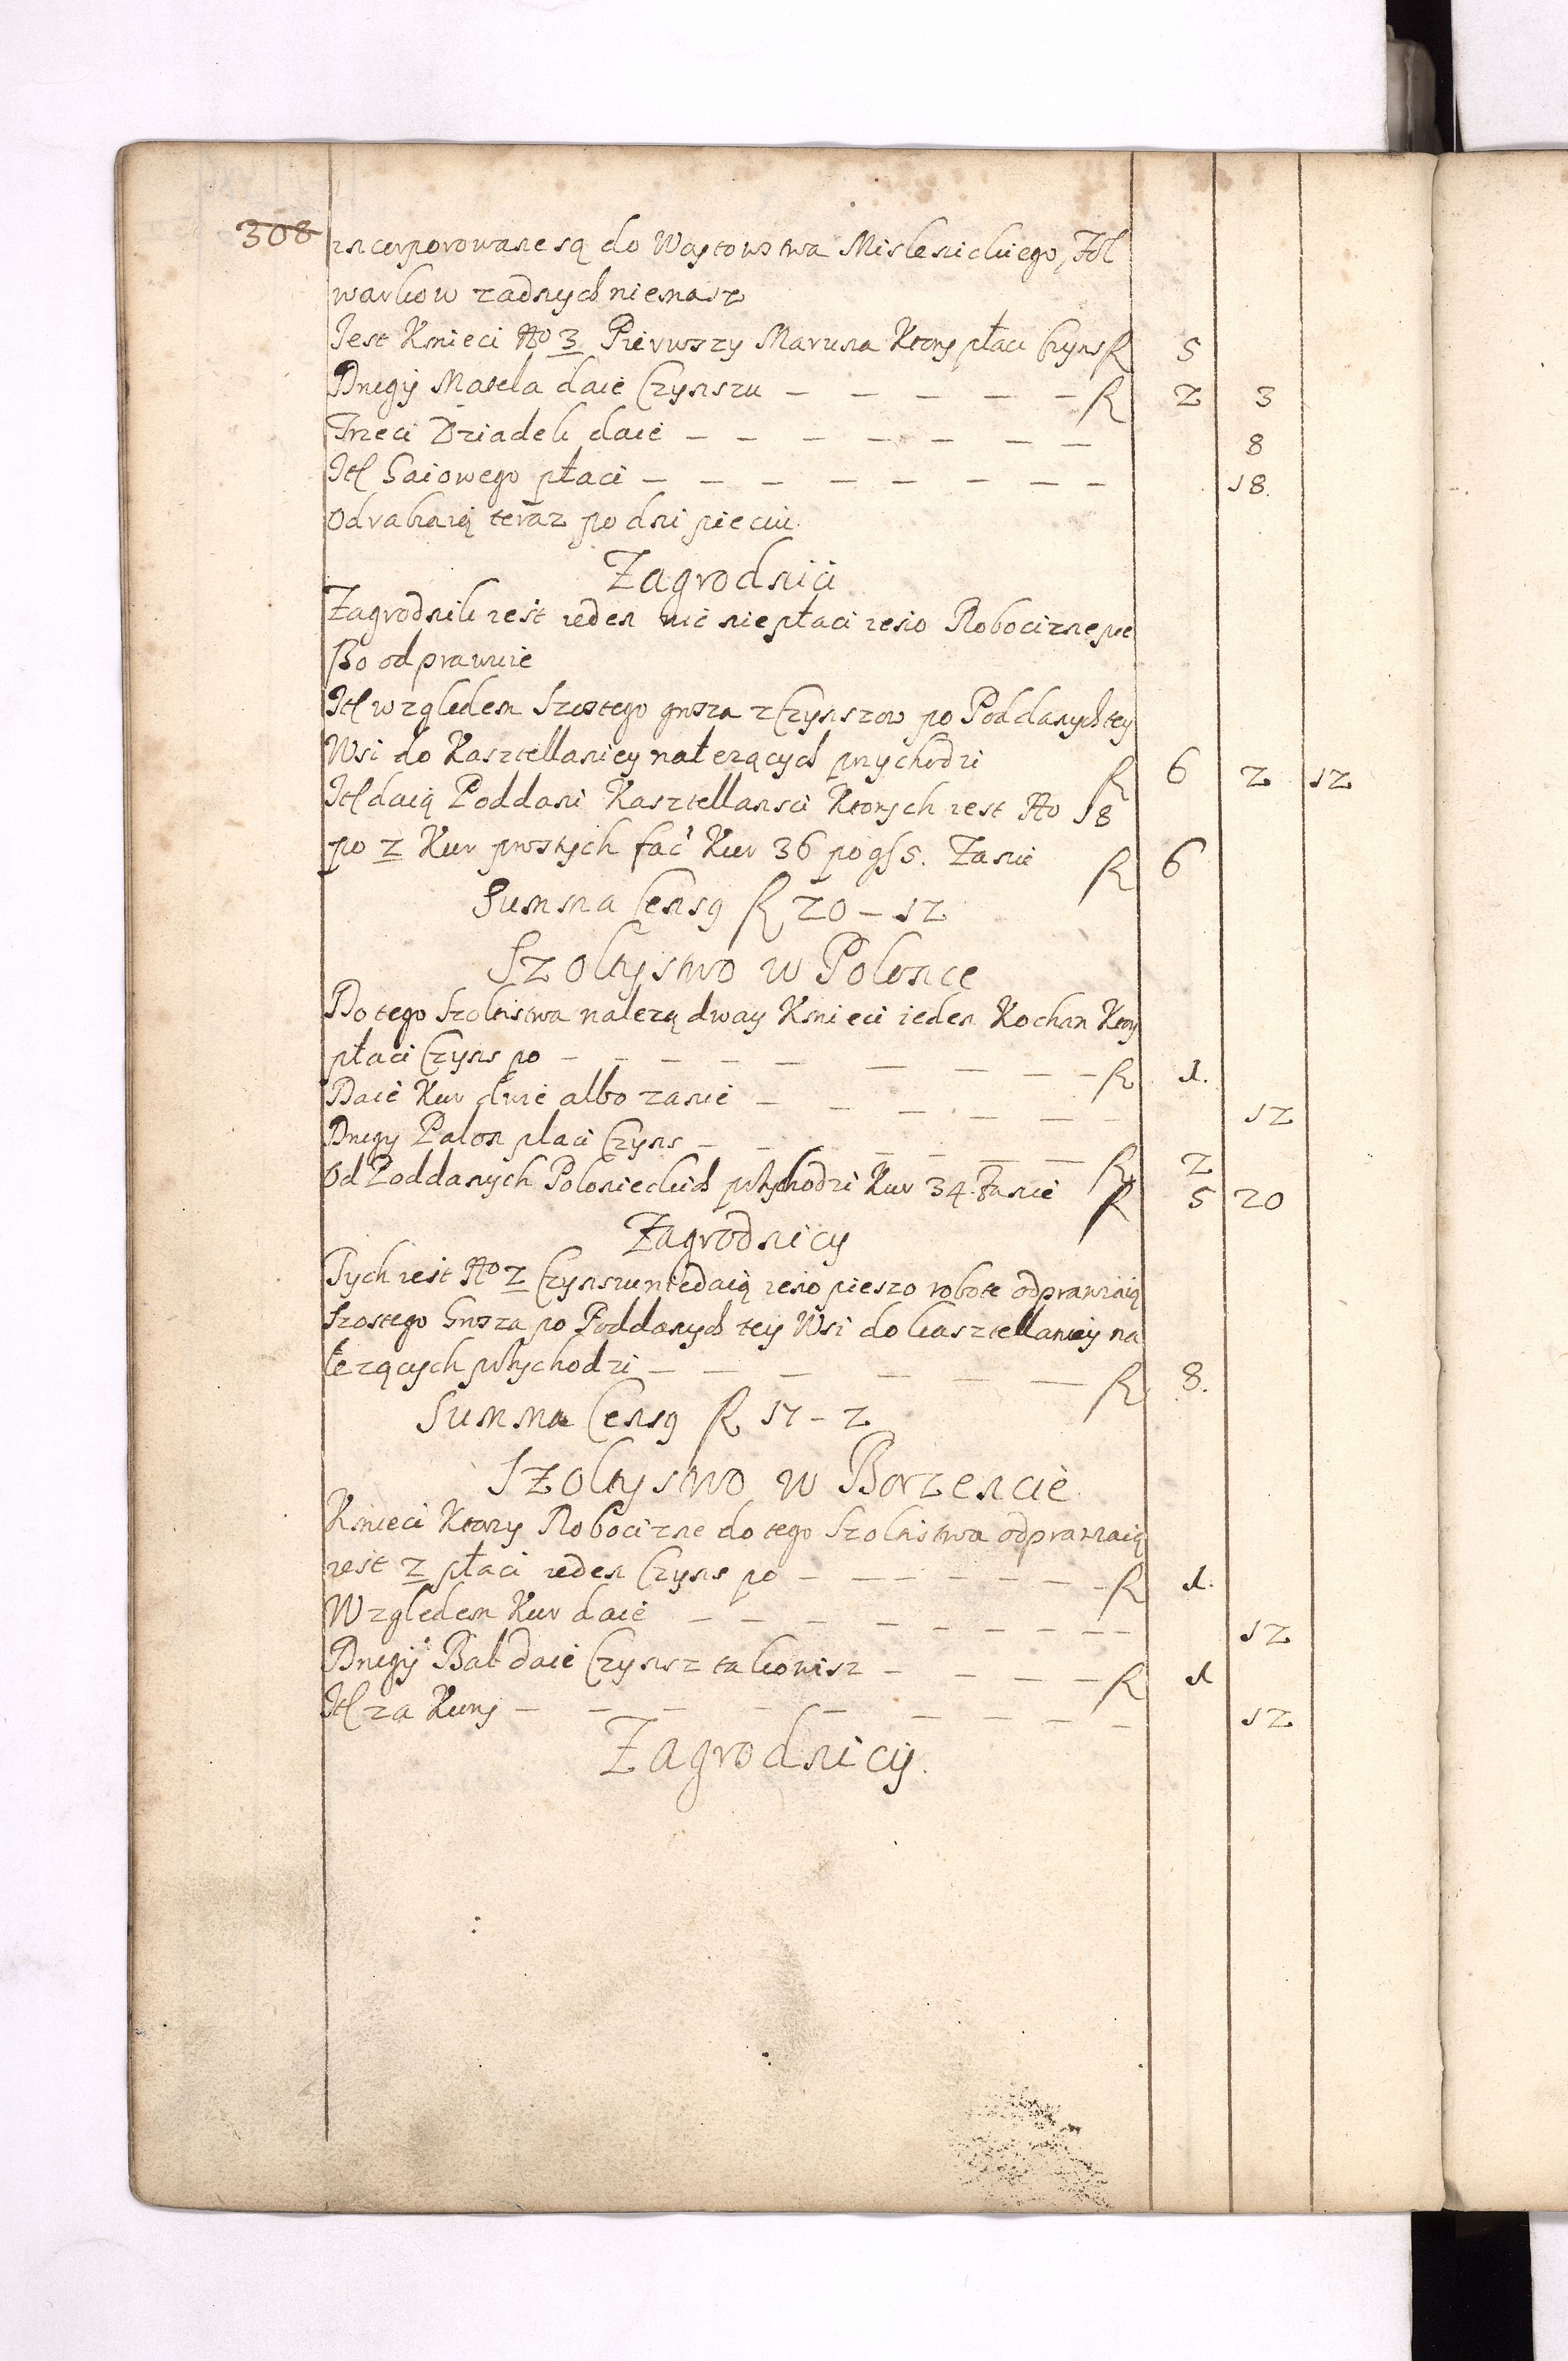 308
incorporowane są do Woytowstwa Mislenickiego, Fol
warkow zadnych niemasz
Jest Kmieci No 3 Pierwszy Maruna Ktory płaci Czyns fl 5
Drugi Matela daie Czynszu – – – – – fl 2 3
Trzeci Dziadek daie – – – – – – – 8
Itl Gaiowego płaci – – – – – – – – 18.
Odrabiaią teraz po dni pieciu.
Zagrodnici
Zagrodnik iest ieden nic nie płaci ieno Robocizne pie
szo odprawuie
Itl wzgledem Szostego grosza z Czynszow po Poddanych tey
Wsi do Kasztellaniey należących przychodzi fl 6 2 12
Itl daią Poddani Kasztellansci Ktorych iest No 18
po 2 Kur prostych fać Kur 36 po gs 5. Za nie fl 6
Summa Censg fl 20 – 12
Szoltystwo w Polonce
Do tego Szoltistwa nalezą dway Kmieci ieden Kochan Ktory
płaci Czyns po – – – – – – – – fl 1.
Daie Kur dwie albo zanie – – – – – – 12
Drugy Palon placi Czyns – – – – – – fl 2
Od Poddanych Polonieckich przychodzi Kur 34. Zanie fl 5 20
Zagrodnicy
Tych iest No 2 Czynszu niedaią ieno pieszo robote odprawiaią
Szostego Grosza po Poddanych tey Wsi do kasztellaniey na
łezących przychodzi – – – – – – fl 8.
Summa Censg fl 17 – 2
Szoltystwo w Borzencie
Kmieci Ktorzy Robocizne do tego Szoltistwa odprawiaią
iest 2 płaci ieden Czyns po – – – – – – – fl 1.
Wzgledem Kur daie – – – – – – – – – 12
Drugi Bał daie Czynsz takowisz – – – – fl 1
Itl za Kury – – – – – – – – – 12
Zagrodnicy.